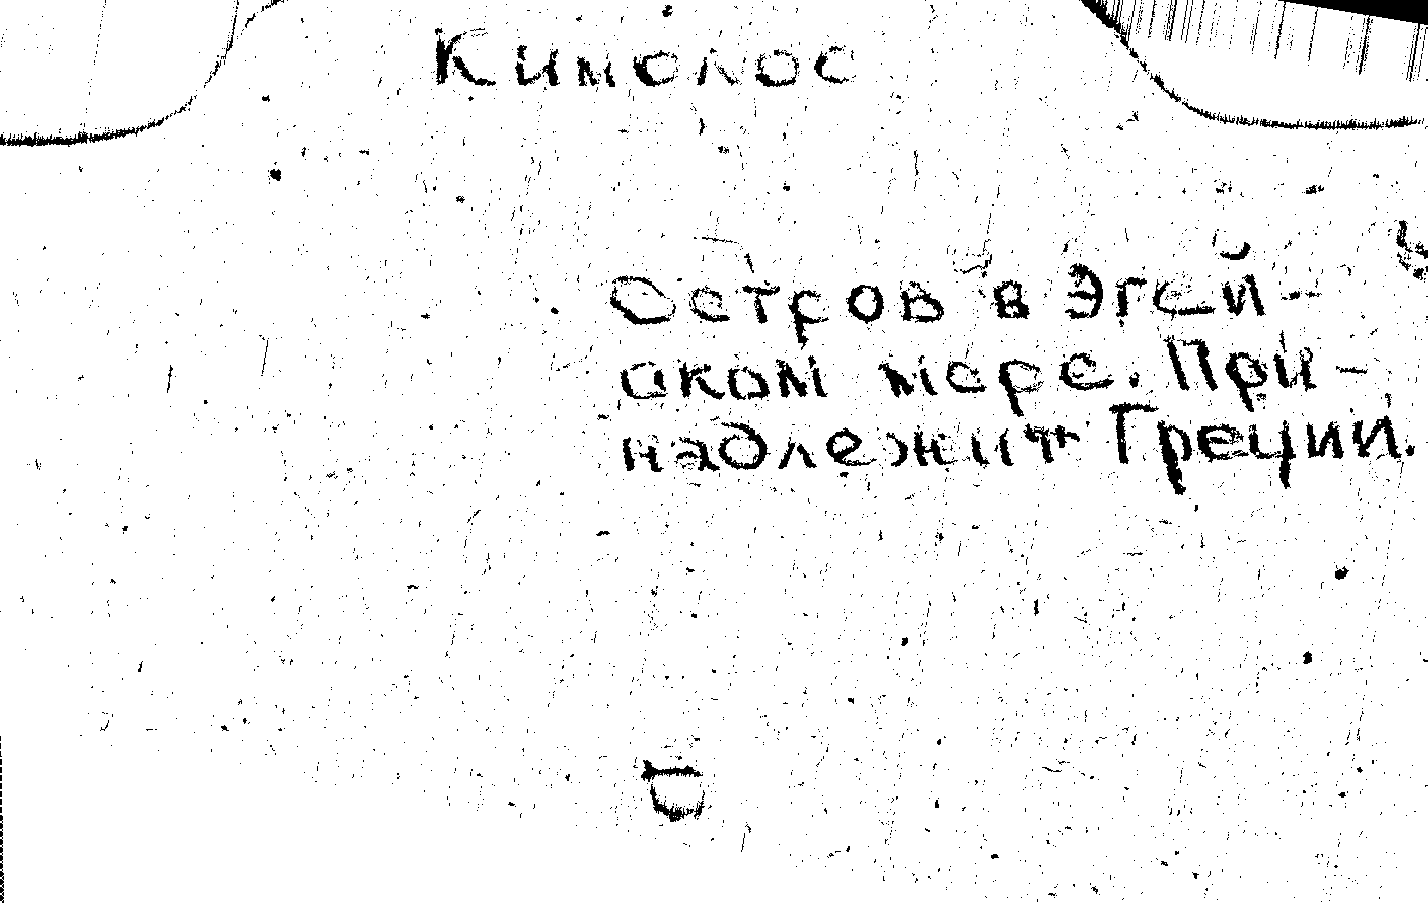 Кимолос
Остров в Эгей-
ском море. При-
надлежит Греции.